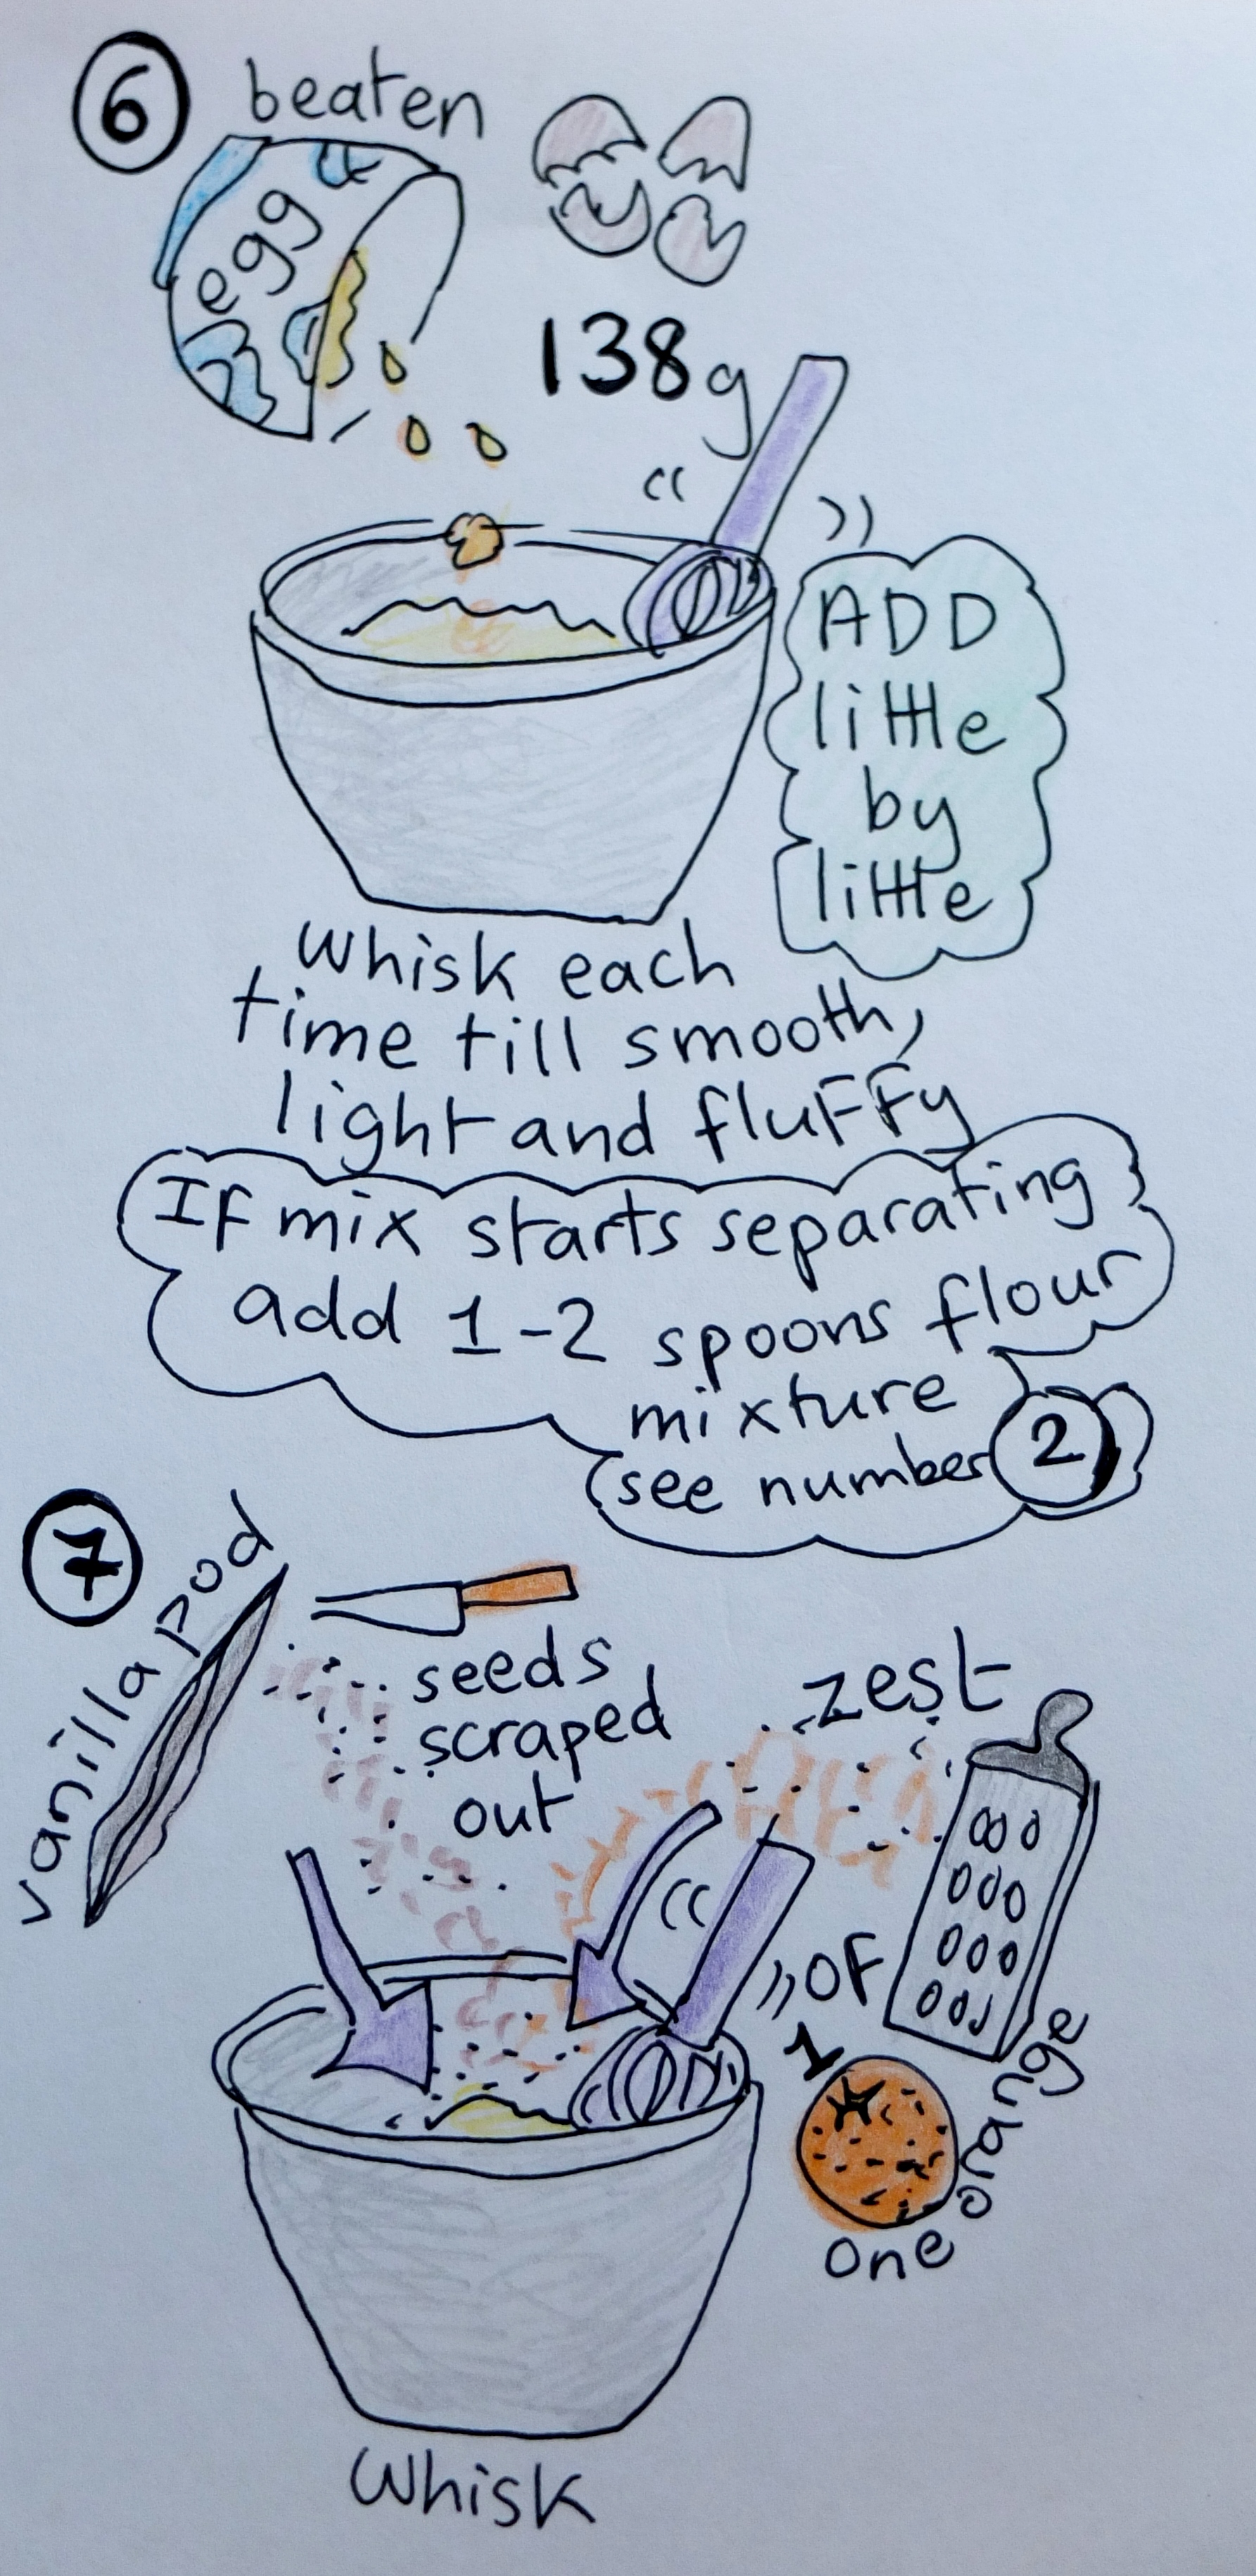 6
beaten
egg
138g
ADD
little
by
little
Whisk each
time till smooth,
light and fluffy
If mix starts separating
add 1-2 spoons flour
mixture
(see number 2
7
vanilla pod
seeds
scraped
out
zest
OF
1
one orange
Whisk